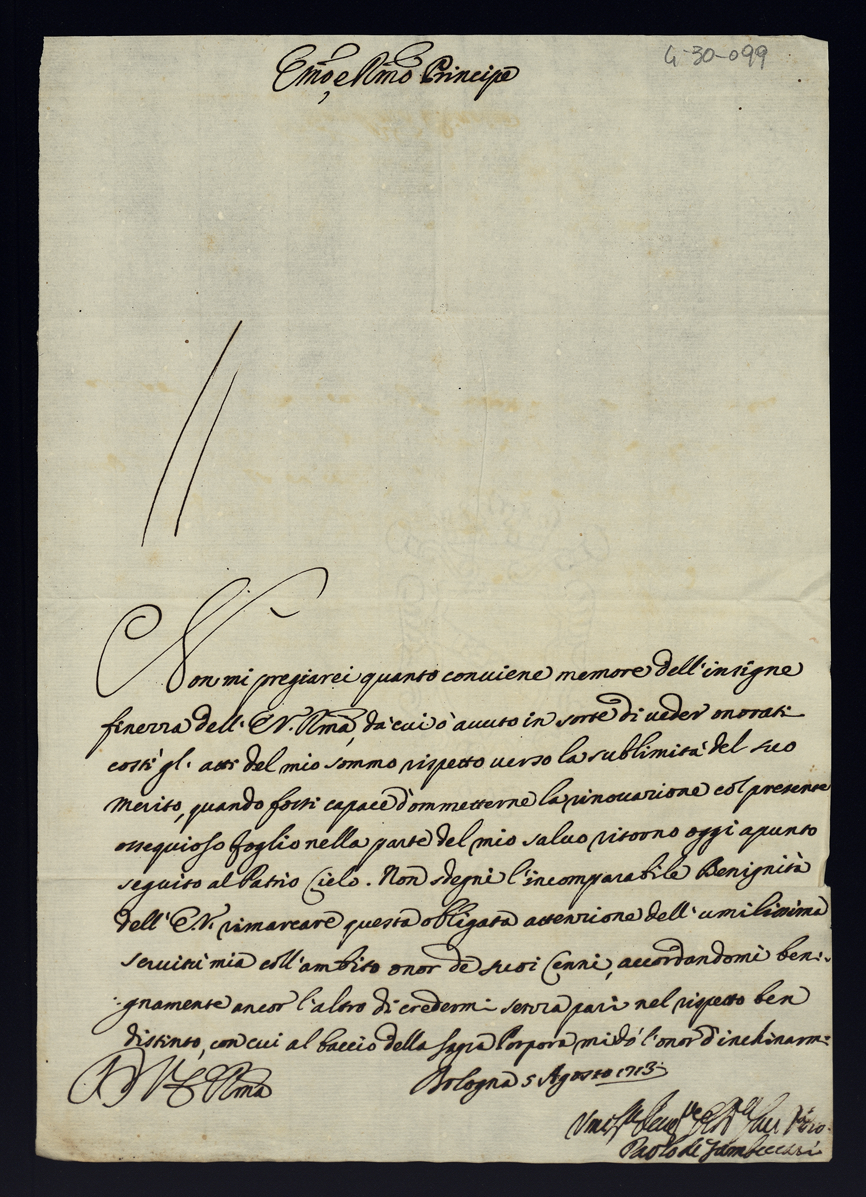 4-30-099
Emo, e Rmo Principe
Non mi pregiarei quanto conviene memore dell'insigne
finezza dell'E.V. Rma, da cui ò avuto in sorte di veder onorati
costì gl'atti del mio sommo rispetto verso la sublimità del suo
Merito, quando fossi capace d'ommetterne la rinovazione col presente
ossequioso foglio nella parte del mio salvo ritorno oggi apunto
seguito al Patrio Cielo. Non sdegni l'incomparabile Benignità
dell'E.V. rimarcare questa obligata attenzione dell'umilissima
servitù mia coll'ambito onor de suoi Cenni, accordandomi beni-
gnamente ancor l'altro di credermi senza pari nel rispetto ben
distinto, con cui al baccio della Sagra Porpora mi dò l'onor d'inchinarmi
Di V. E. Rma
Bologna 5 Agosto 1713
Paolo di Zambeccari